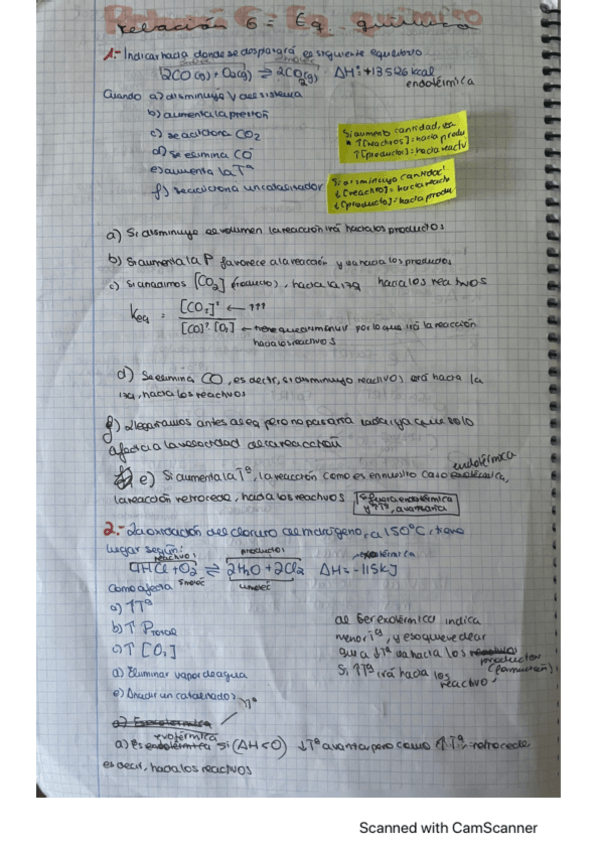 Relación 6: Eq. químico
1.- Indicar hacia donde se desplazará el siguiente equilibrio
2CO(g) + O₂(g) ⇌ 2CO₂(g) ΔH: +13526 kcal
endotérmica
Cuando a) disminuye V del sistema
b) aumenta la presión
c) se adiciona CO₂
d) se elimina CO
e) aumenta la Tª
f) se adiciona un catalizador
Si aumento cantidad, va
• ↑[reactivos]: hacia produ
↑[productos]: hacia reactiv
Si disminuyo cantidad:
↓[reactivo]: hacia reactiv
↓[producto]: hacia produ
a) Si disminuye el volumen la reacción irá hacia los productos
b) Si aumenta la P favorece a la reacción y va hacia los productos
c) Si añadimos [CO₂] (producto), hacia la izq hacia los reactivos
Keq = [CO₂]² ← ↑↑↑
[CO]² · [O₂] ← tiene que disminuir por lo que irá la reacción
hacia los reactivos
d) Se elimina CO, es decir, si disminuyo reactivos irá hacia la
izq, hacia los reactivos
f) Llegaríamos antes al eq pero no pasaría nada ya que solo
afecta a la velocidad de la reacción
e) Si aumenta la Tª, la reacción como es en nuestro caso endotérmica,
la reacción retrocede, hacia los reactivos
Si fuera endotérmica
y ↑Tª, avanzaría
2.- La oxidación del cloruro de hidrógeno, a 150°C, tiene
lugar según:
reactivos productos exotérmica
4HCl + O₂ ⇌ 2H₂O + 2Cl₂ ΔH = -115kJ
Como afecta
a) ↑Tª
b) ↑ P total
c) ↑ [O₂]
d) Eliminar vapor de agua
e) Añadir un catalizador
al ser exotérmica indica
menor Tª, y es que quiere decir
que a ↓Tª va hacia los productos
(formación)
Si ↑Tª irá hacia los
reactivo
↑Tª
a) Exotérmica
exotérmica
a) Es endotérmica si (ΔH<0) ↓Tª avanza pero como ↑↑Tª: retrocede
es decir, hacia los reactivos
Scanned with CamScanner